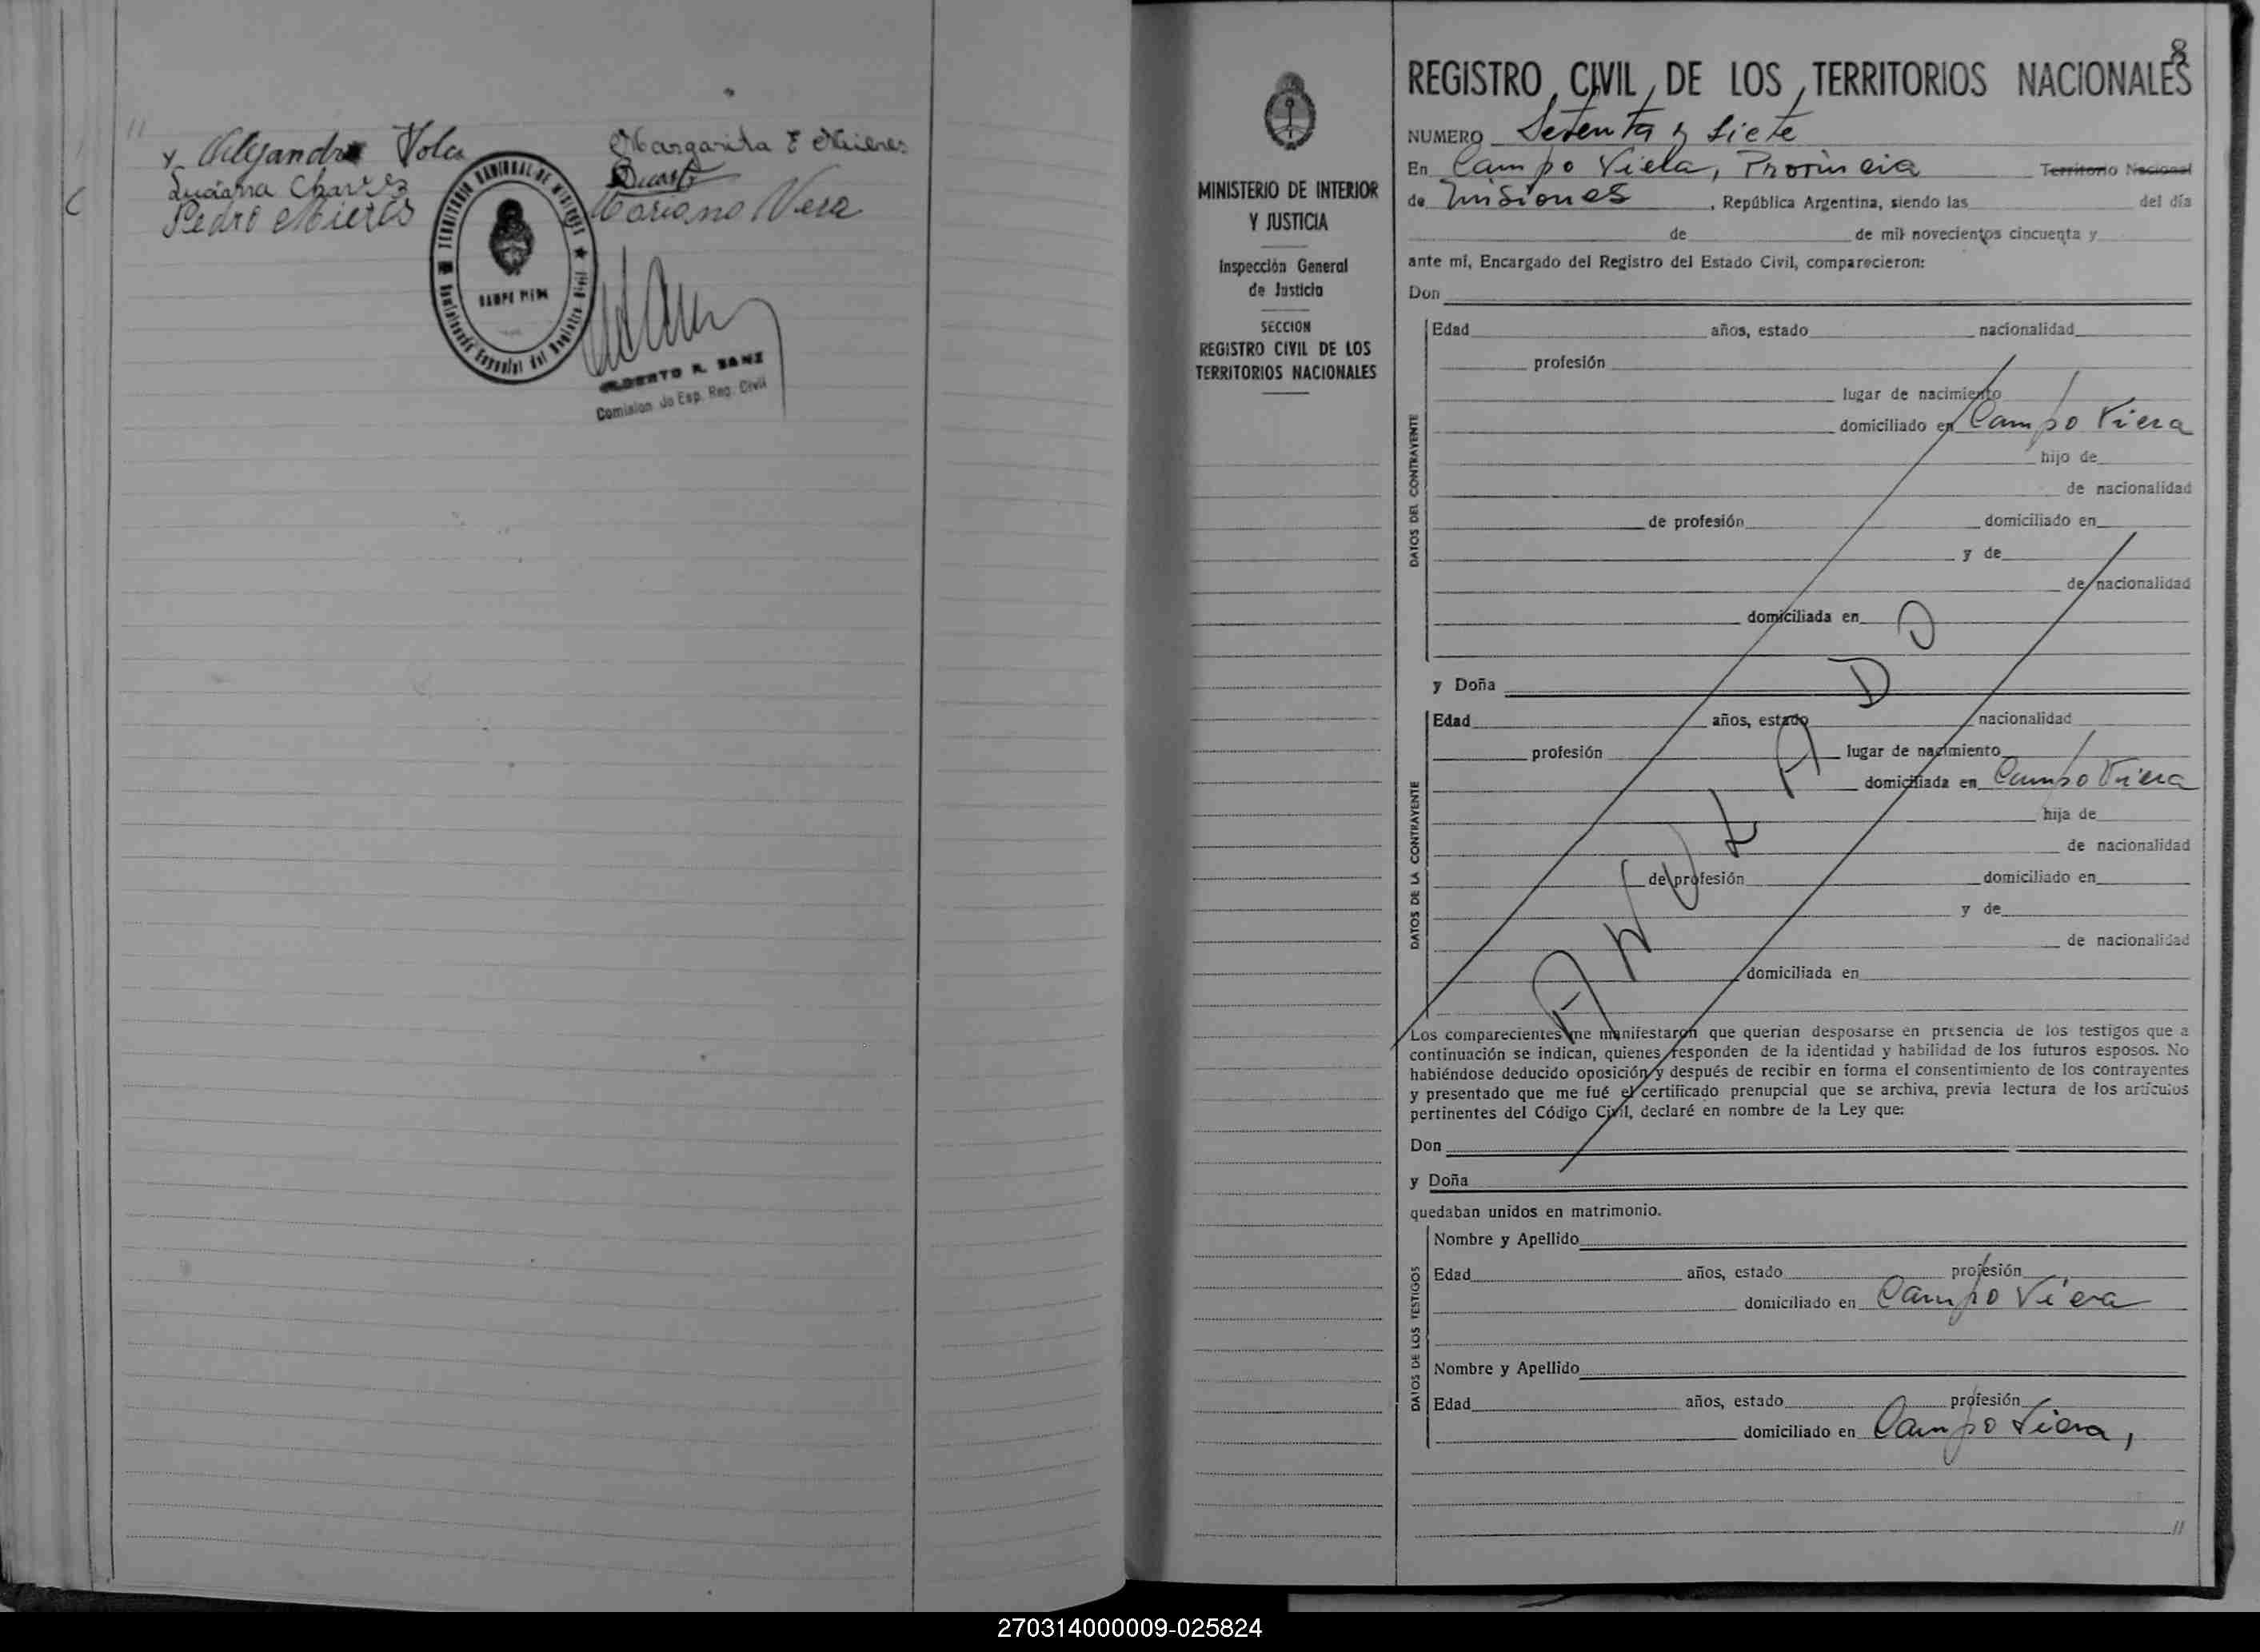 //
y Alejandro Vola
Margarita E Mieres
Luciana Chavez
Duarte
Pedro Mieres
Mariano Vera
TERRITORIO NACIONAL DE MISIONES
CAMPO VIERA
Comisionado Especial del Registro Civil
ALBERTO R. SANZ
Comision do Esp. Reg. Civil
8
MINISTERIO DE INTERIOR
Y JUSTICIA
Inspección General
de Justicia
SECCION
REGISTRO CIVIL DE LOS
TERRITORIOS NACIONALES
REGISTRO CIVIL DE LOS TERRITORIOS NACIONALES
NUMERO Setenta y Siete
En Campo Viela, Provincia Territorio Nacional
de Misiones, República Argentina, siendo las del día
de de mil novecientos cincuenta y
ante mí, Encargado del Registro del Estado Civil, comparecieron:
Don
DATOS DEL CONTRAYENTE
Edad años, estado nacionalidad
profesión
lugar de nacimiento
domiciliado en Campo Viera
hijo de
de nacionalidad
de profesión domiciliado en
y de
de nacionalidad
domiciliada en
y Doña
ANULADO
DATOS DE LA CONTRAYENTE
Edad años, estado nacionalidad
profesión lugar de nacimiento
domiciliada en Campo Viera
hija de
de nacionalidad
de profesión domiciliado en
y de
de nacionalidad
domiciliada en
Los comparecientes me manifestaron que querían desposarse en presencia de los testigos que a
continuación se indican, quienes responden de la identidad y habilidad de los futuros esposos. No
habiéndose deducido oposición y después de recibir en forma el consentimiento de los contrayentes
y presentado que me fué el certificado prenupcial que se archiva, previa lectura de los artículos
pertinentes del Código Civil, declaré en nombre de la Ley que:
Don
y Doña
quedaban unidos en matrimonio.
DATOS DE LOS TESTIGOS
Nombre y Apellido
Edad años, estado profesión
domiciliado en Campo Viera
Nombre y Apellido
Edad años, estado profesión
domiciliado en Campo Viera,
//
270314000009-025824